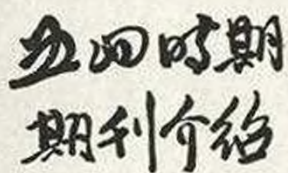 五四时期
期刊介绍